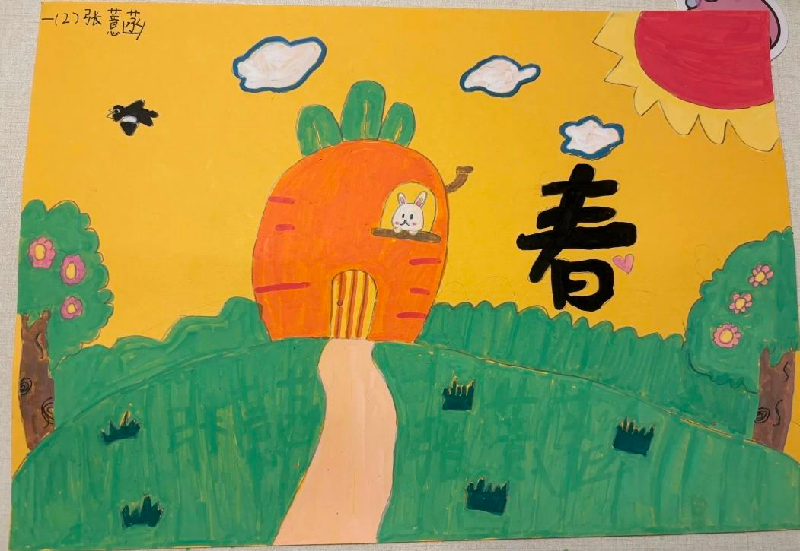 一(2)张薏菡
春